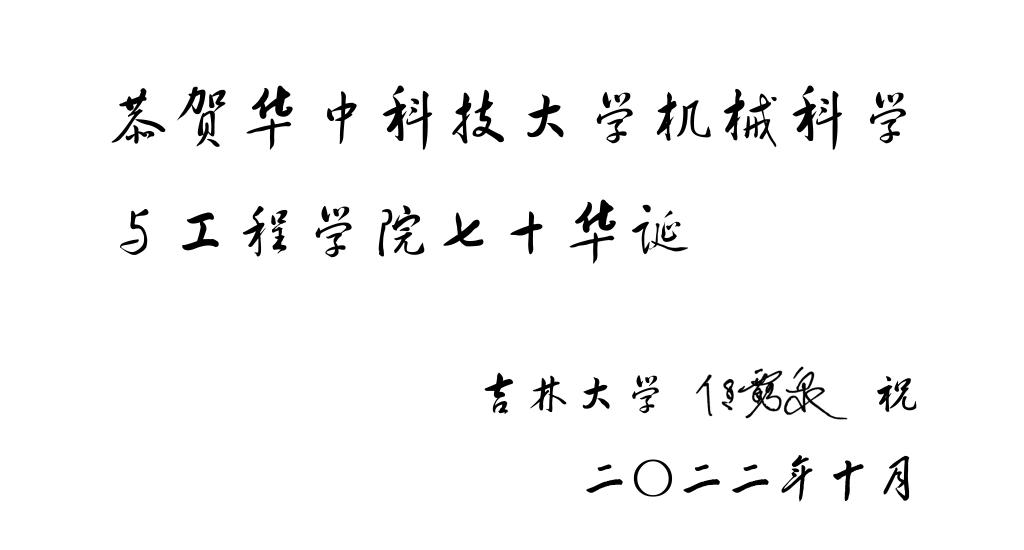 恭贺华中科技大学机械科学
与工程学院七十华诞
吉林大学 任露泉 祝
二〇二二年十月